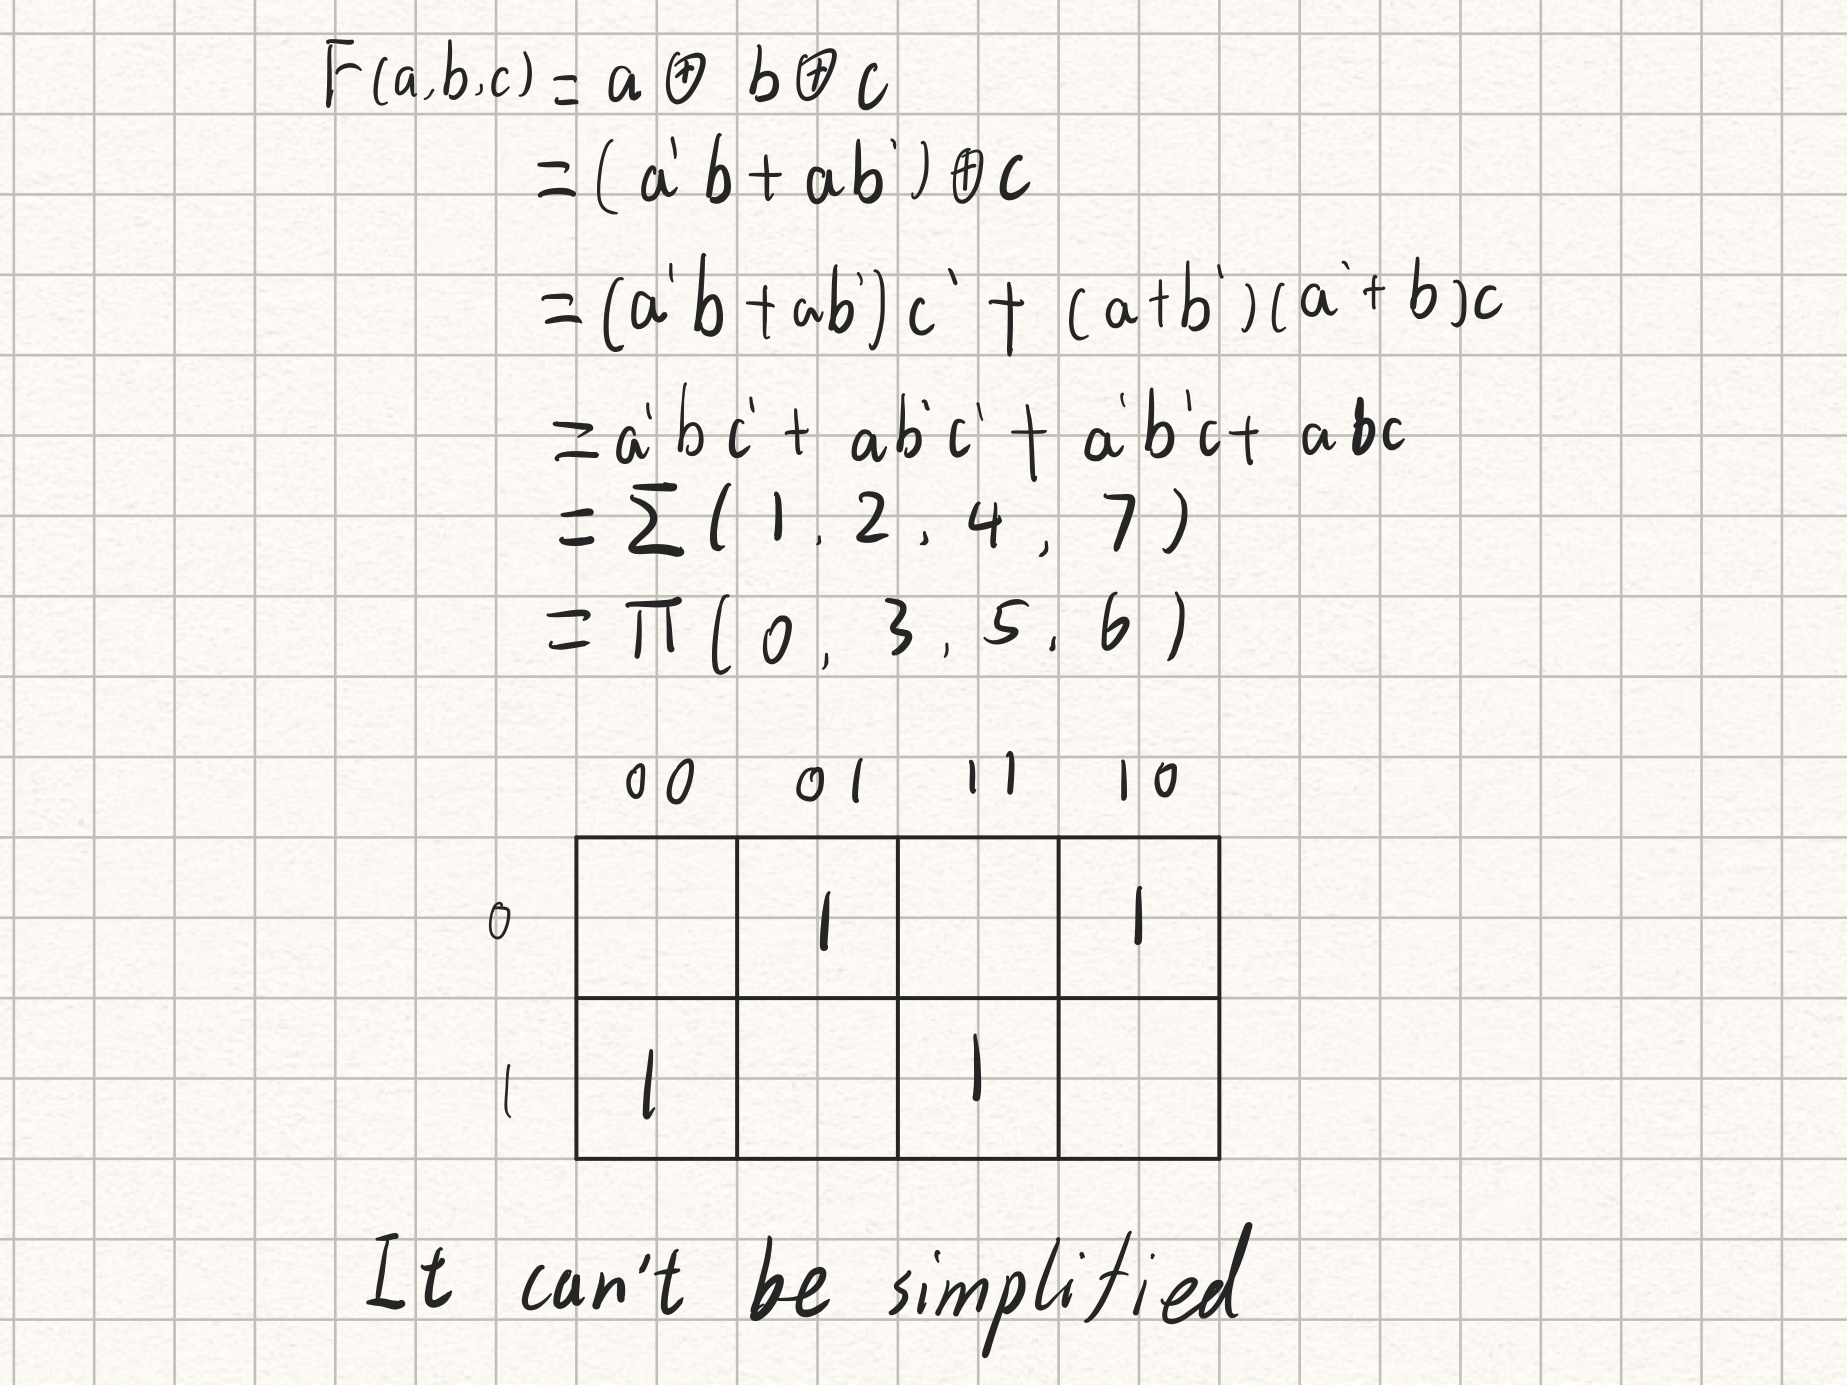 F(a,b,c) = a ⊕ b ⊕ c
= (a'b + ab') ⊕ c
= (a'b + ab')c' + (a+b')(a'+b)c
= a'bc' + ab'c' + a'b'c + abc
= Σ(1, 2, 4, 7)
= Π(0, 3, 5, 6)
00 01 11 10
0 1 1
1 1 1
It can't be simplified